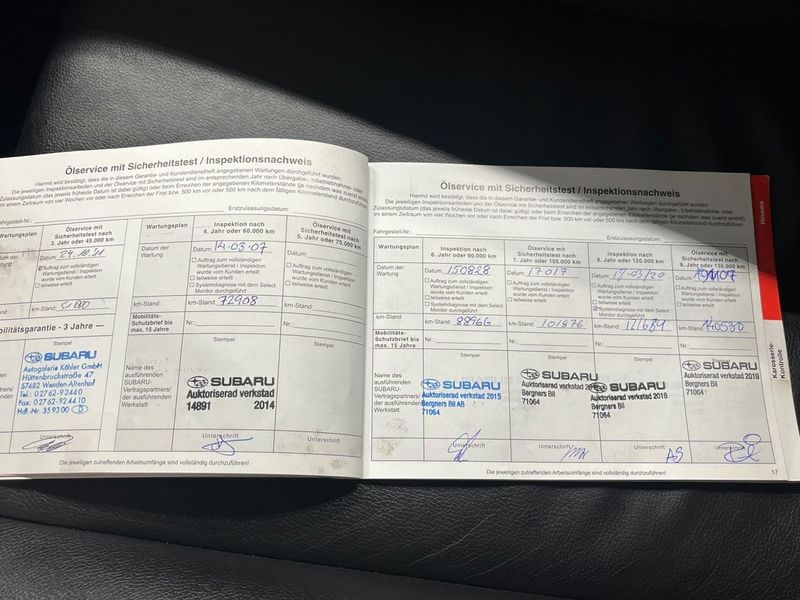 Ölservice mit Sicherheitstest / Inspektionsnachweis
Hiermit wird bestätigt, dass die in diesem Garantie- und Kundendienstheft angegebenen Wartungen durchgeführt wurden.
Die jeweiligen Inspektionsarbeiten und der Ölservice mit Sicherheitstest sind im entsprechenden Jahr nach Übergabe-, Inbetriebnahme- oder
Zulassungsdatum (das jeweils früheste Datum ist dabei gültig) oder beim Erreichen der angegebenen Kilometerstände (je nachdem was zuerst eintritt)
in einem Zeitraum von vier Wochen vor oder nach Erreichen der Frist bzw. 500 km vor oder 500 km nach dem fälligen Kilometerstand durchzuführen.
Fahrgestell-Nr.:
Erstzulassungsdatum:
Wartungsplan
Ölservice mit
Sicherheitstest nach
3. Jahr oder 45.000 km
Datum der
Wartung
Datum:
Auftrag zum vollständigen
Wartungsdienst / Inspektion
wurde vom Kunden erteilt
teilweise erteilt
km-Stand:
Mobilitätsgarantie - 3 Jahre
Stempel
SUBARU
Autogalerie Köhler GmbH
Hüttenbruchstraße 47
57482 Wenden-Altenhof
Tel.: 02762-92440
Fax: 02762-924410
Hdl.-Nr. 359300 D
Unterschrift
Wartungsplan
Inspektion nach
4. Jahr oder 60.000 km
Datum der
Wartung
Datum: 14-03-07
Auftrag zum vollständigen
Wartungsdienst / Inspektion
wurde vom Kunden erteilt
teilweise erteilt
Systemdiagnose mit dem Select
Monitor durchgeführt
km-Stand
km-Stand: 72908
Mobilitäts-
Schutzbrief bis
max. 15 Jahre
Nr.:
Stempel
Name des
ausführenden
SUBARU-
Vertragspartners/
der ausführenden
Werkstatt
SUBARU
Auktoriserad verkstad
14891 2014
Unterschrift
Ölservice mit
Sicherheitstest nach
5. Jahr oder 75.000 km
Datum:
Auftrag zum vollständigen
Wartungsdienst / Inspektion
wurde vom Kunden erteilt
teilweise erteilt
km-Stand:
Nr.:
Stempel
Unterschrift
Die jeweiligen zutreffenden Arbeitsumfänge sind vollständig durchzuführen!
Ölservice mit Sicherheitstest / Inspektionsnachweis
Hiermit wird bestätigt, dass die in diesem Garantie- und Kundendienstheft angegebenen Wartungen durchgeführt wurden.
Die jeweiligen Inspektionsarbeiten und der Ölservice mit Sicherheitstest sind im entsprechenden Jahr nach Übergabe-, Inbetriebnahme- oder
Zulassungsdatum (das jeweils früheste Datum ist dabei gültig) oder beim Erreichen der angegebenen Kilometerstände (je nachdem was zuerst eintritt)
in einem Zeitraum von vier Wochen vor oder nach Erreichen der Frist bzw. 500 km vor oder 500 km nach dem fälligen Kilometerstand durchzuführen.
Fahrgestell-Nr.:
Erstzulassungsdatum:
Wartungsplan
Inspektion nach
6. Jahr oder 90.000 km
Ölservice mit
Sicherheitstest nach
7. Jahr oder 105.000 km
Inspektion nach
8. Jahr oder 120.000 km
Ölservice mit
Sicherheitstest nach
9. Jahr oder 135.000 km
Datum der
Wartung
Datum: 150828
Auftrag zum vollständigen
Wartungsdienst / Inspektion
wurde vom Kunden erteilt
teilweise erteilt
Systemdiagnose mit dem Select
Monitor durchgeführt
Datum: 17017
Auftrag zum vollständigen
Wartungsdienst / Inspektion
wurde vom Kunden erteilt
teilweise erteilt
Datum:
Auftrag zum vollständigen
Wartungsdienst / Inspektion
wurde vom Kunden erteilt
teilweise erteilt
Systemdiagnose mit dem Select
Monitor durchgeführt
Datum:
Auftrag zum vollständigen
Wartungsdienst / Inspektion
wurde vom Kunden erteilt
teilweise erteilt
km-Stand
km-Stand: 88966
km-Stand: 101876
km-Stand:
km-Stand: 140530
Mobilitäts-
Schutzbrief bis
max. 15 Jahre
Nr.:
Nr.:
Nr.:
Nr.:
Stempel
Stempel
Stempel
Stempel
Name des
ausführenden
SUBARU-
Vertragspartners/
der ausführenden
Werkstatt
SUBARU
Auktoriserad verkstad 2015
Bergners Bil AB
71064
SUBARU
Auktoriserad verkstad
Bergners Bil
71064
SUBARU
Auktoriserad verkstad 2018
Bergners Bil
71064
SUBARU
Auktoriserad verkstad 2019
Bergners Bil
71064
Unterschrift
Unterschrift
Unterschrift
Unterschrift
Die jeweiligen zutreffenden Arbeitsumfänge sind vollständig durchzuführen!
17
Hinweis
Karosserie-
Kontrolle